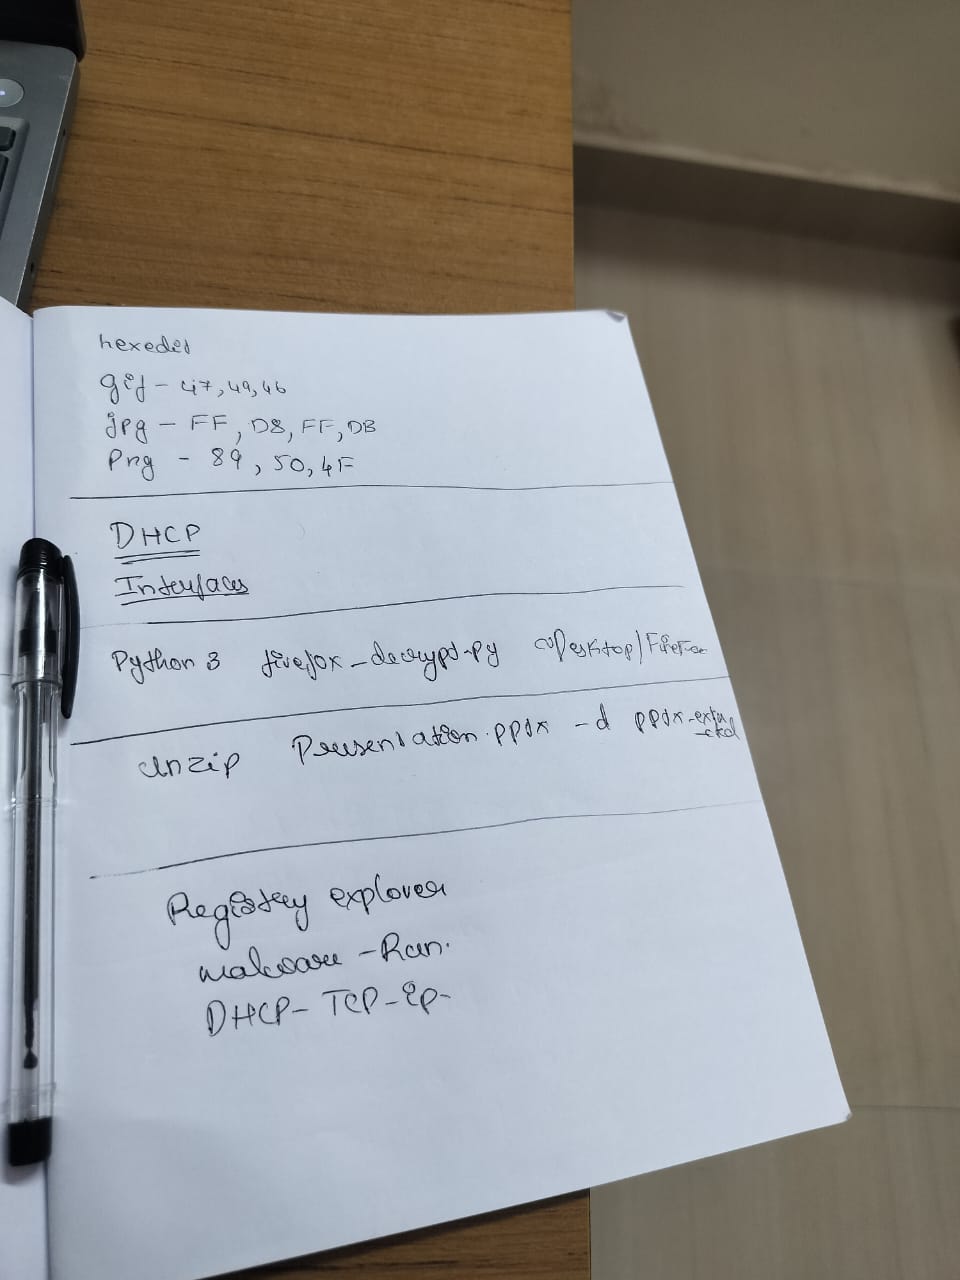 hexedit
gif - 47, 49, 46
jpg - FF, D8, FF, DB
Png - 89, 50, 4F
DHCP
Interfaces
Python 3 firefox_decrypt.py ~/Desktop/Firefox
unzip Presentation.pptx -d pptx-extra
-cted
Registry explorer
malware - Run.
DHCP - TCP - ip -